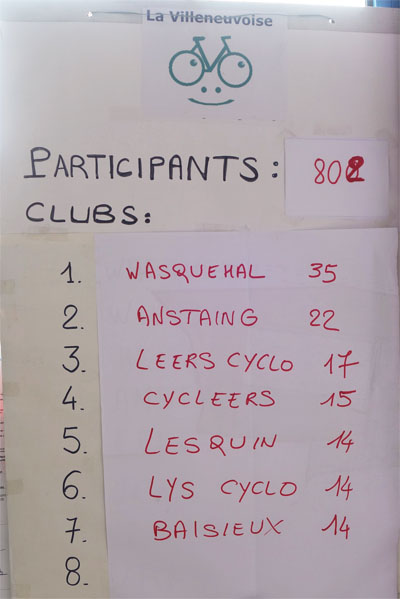 La Villeneuvoise
PARTICIPANTS: 802
CLUBS:
1. WASQUEHAL 35
2. ANSTAING 22
3. LEERS CYCLO 17
4. CYCLEERS 15
5. LESQUIN 14
6. LYS CYCLO 14
7. BAISIEUX 14
8.